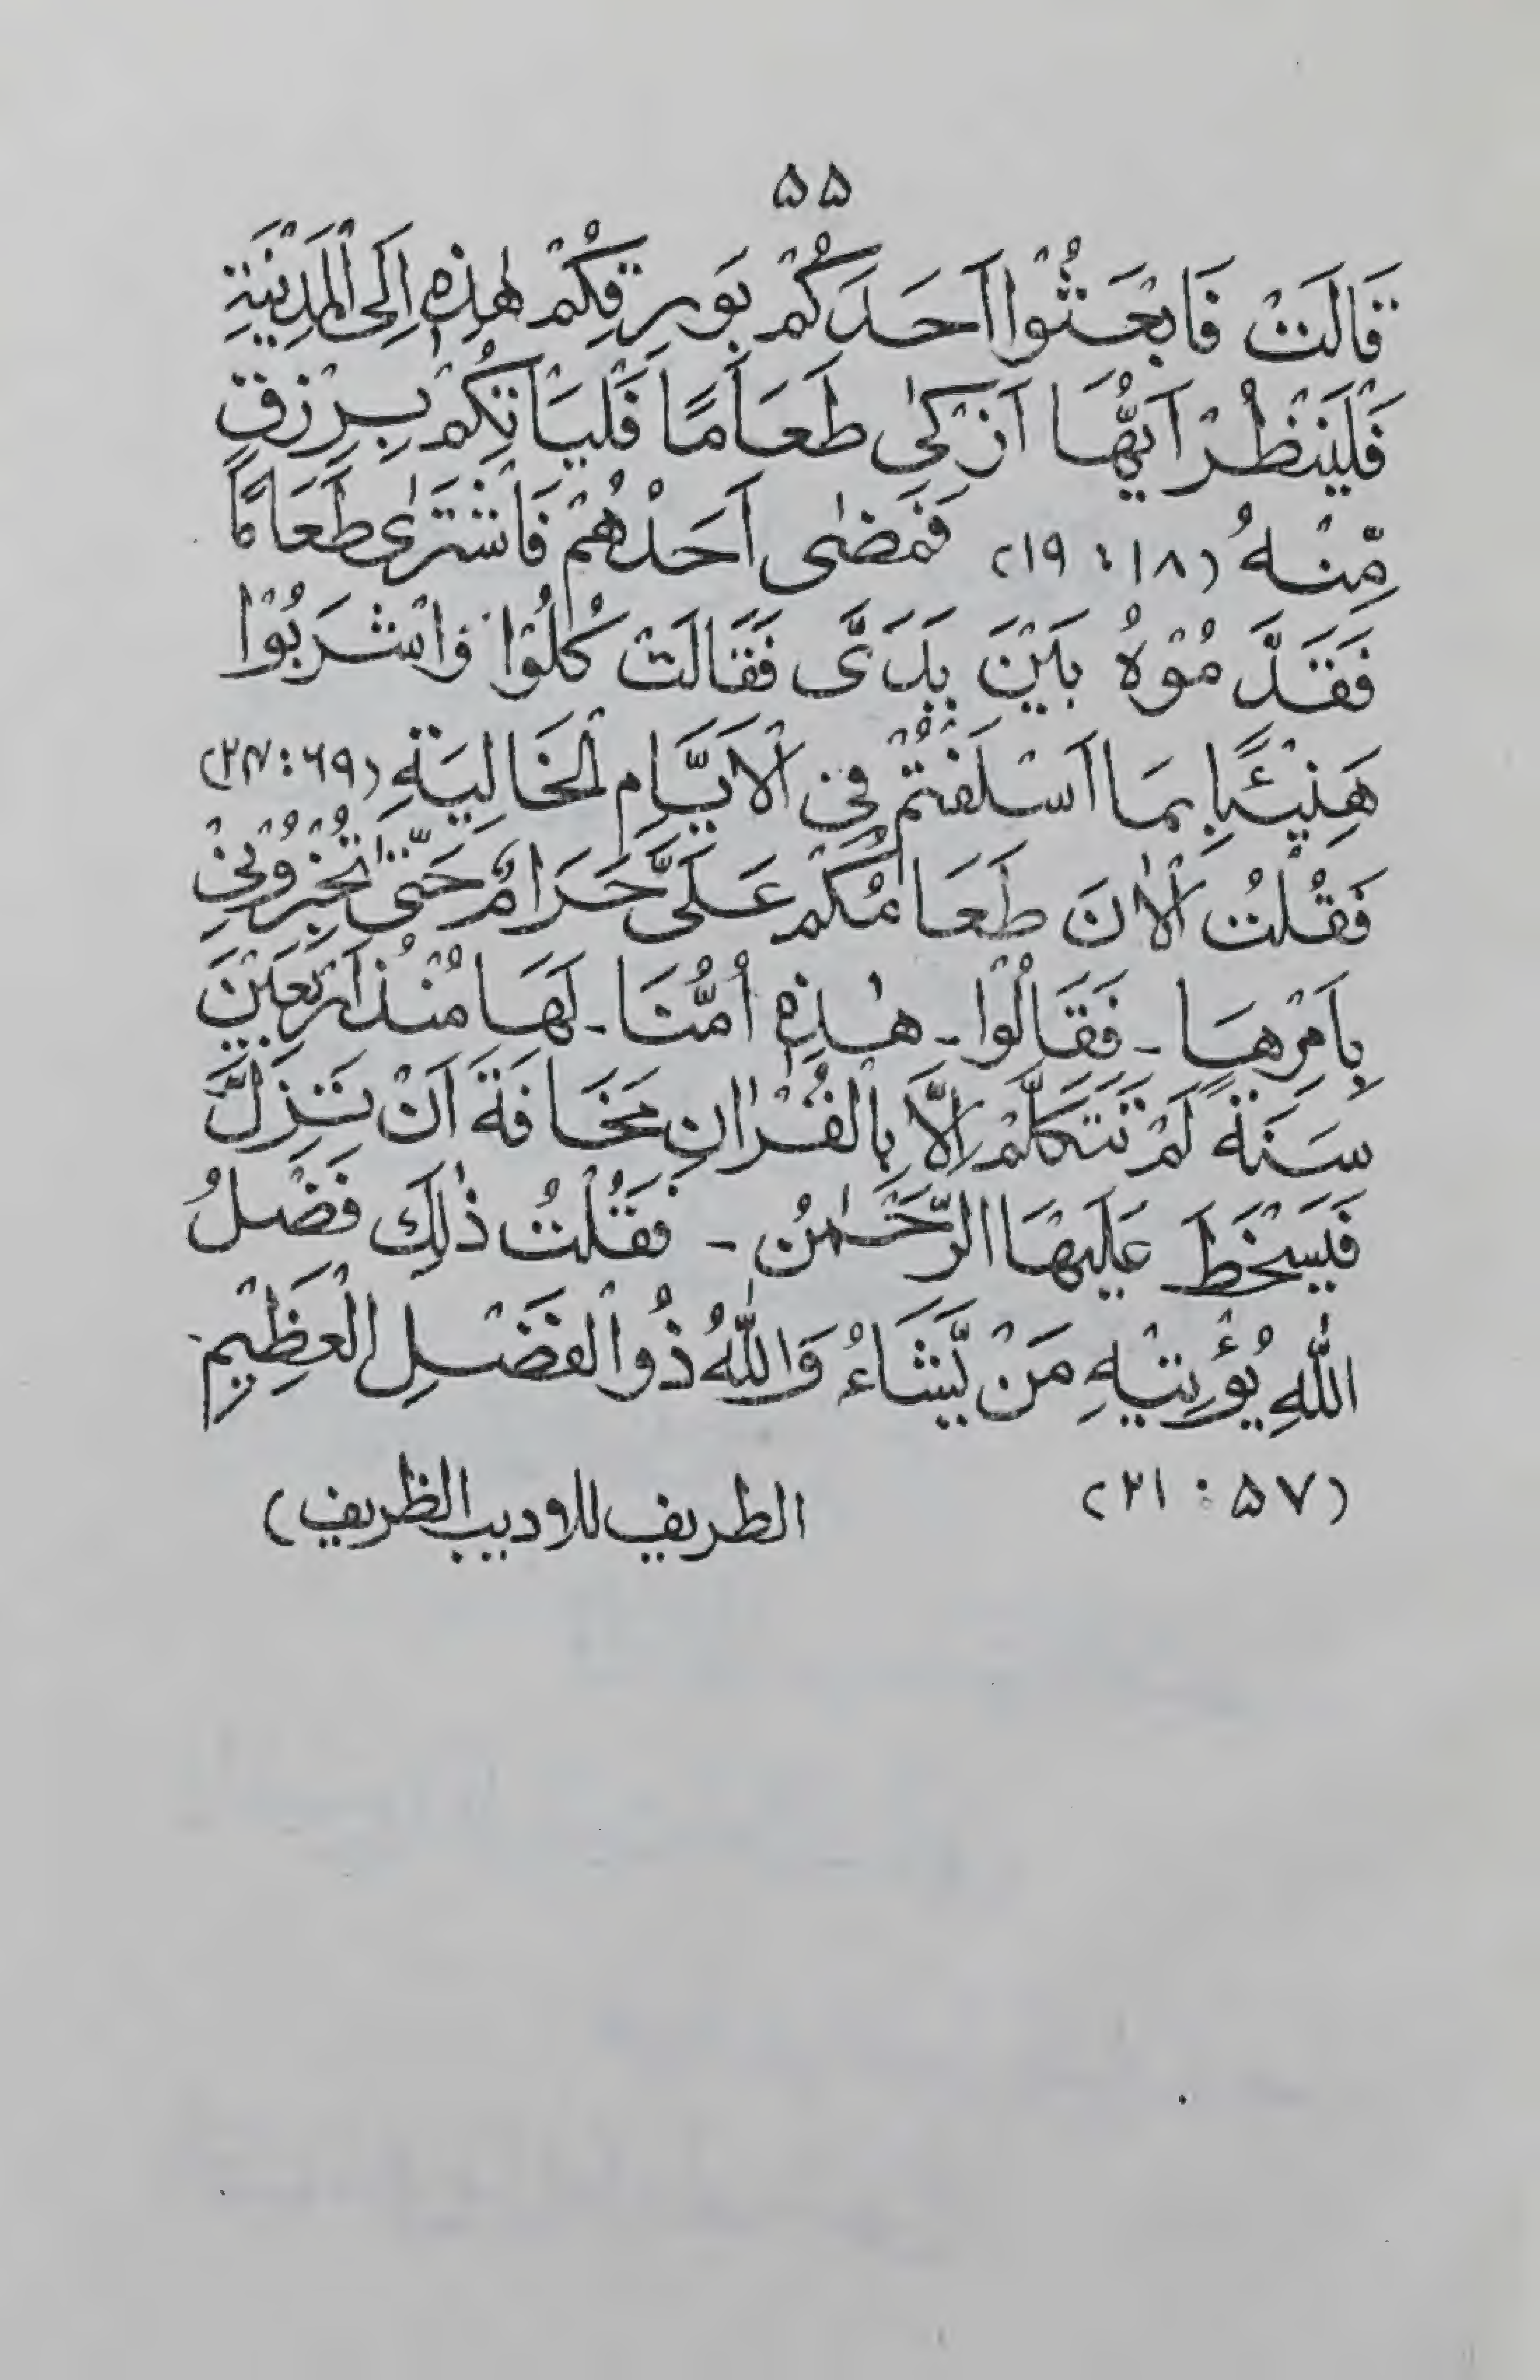 ۵۵
قَالَتْ فَابْعَثُوْا اَحَدَكُمْ بِوَرِقِكُمْ هٰذِهٖ اِلَى الْمَدِيْنَةِ
فَلْيَنْظُرْ اَيُّهَا اَزْكٰى طَعَامًا فَلْيَاْتِكُمْ بِرِزْقٍ
مِّنْهُ (۱۸ : ۱۹) فَمَضٰى اَحَدُهُمْ فَاشْتَرٰى طَعَامًا
فَقَدَّمُوْهُ بَيْنَ يَدَىَّ فَقَالَتْ كُلُوْا وَاشْرَبُوْا
هَنِيْئًا بِمَا اَسْلَفْتُمْ فِى الْاَيَّامِ الْخَالِيَةِ (۶۹:۲۴)
فَقُلْتُ الْاٰنَ طَعَامُكُمْ عَلَىَّ حَرَامٌ حَتّٰى تُخْبِرُوْنِىْ
بِاَمْرِهَا ـ فَقَالُوْا ـ هٰذِهٖ اُمُّنَا ـ لَهَا مُنْذُ اَرْبَعِيْنَ
سَنَةً لَمْ تَتَكَلَّمْ اِلَّا بِالْقُرْاٰنِ مَخَافَةَ اَنْ تَزِلَّ
فَيَسْخَطَ عَلَيْهَا الرَّحْمٰنُ ـ فَقُلْتُ ذٰلِكَ فَضْلُ
اللّٰهِ يُؤْتِيْهِ مَنْ يَّشَاءُ وَاللّٰهُ ذُوا لْفَضْلِ الْعَظِيْمِ
(۵۷ : ۲۱) الطريف للاديب الظريف)